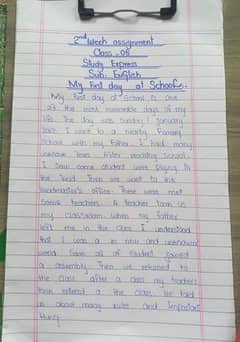 2nd Week assignment
Class-06
Study Express
Sub: English
My First day at School.
My first day at School is one
of the most memorable days of my
life. The day was sunday 1 january
I went to a nearby Primary
School with my father. I had many
unknown fears. After reaching school
I saw some student were playing in
the field. Then we went to the
headmaster's office. There were met
some teachers. A teacher took us
my classroom when my father
left me in the class I understand
that I was a in new and unknown
world. Soon all of student joined
a assembly. Then we returned to
the class after a class my teacher
took entered a the class. He told
us about many rules and important
thing